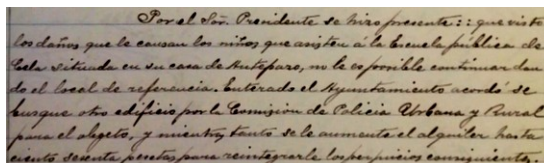 Por el Sor. Presidente se hizo presente: : que visto
los daños que le causan los niños, que asisten à la Escuela publica de
Cela situada en su casa de Autepazo, no le es posible continuar dan
do el local de referencia. Enterado el Ayuntamiento acordó se
busque otro edificio por la Comision de Policia Urbana y Rural
para el objeto, y mientras tanto se le aumente el alquiler hasta
ciento sesenta pesetas, para reintegrarle los perjuicios consiguientes.